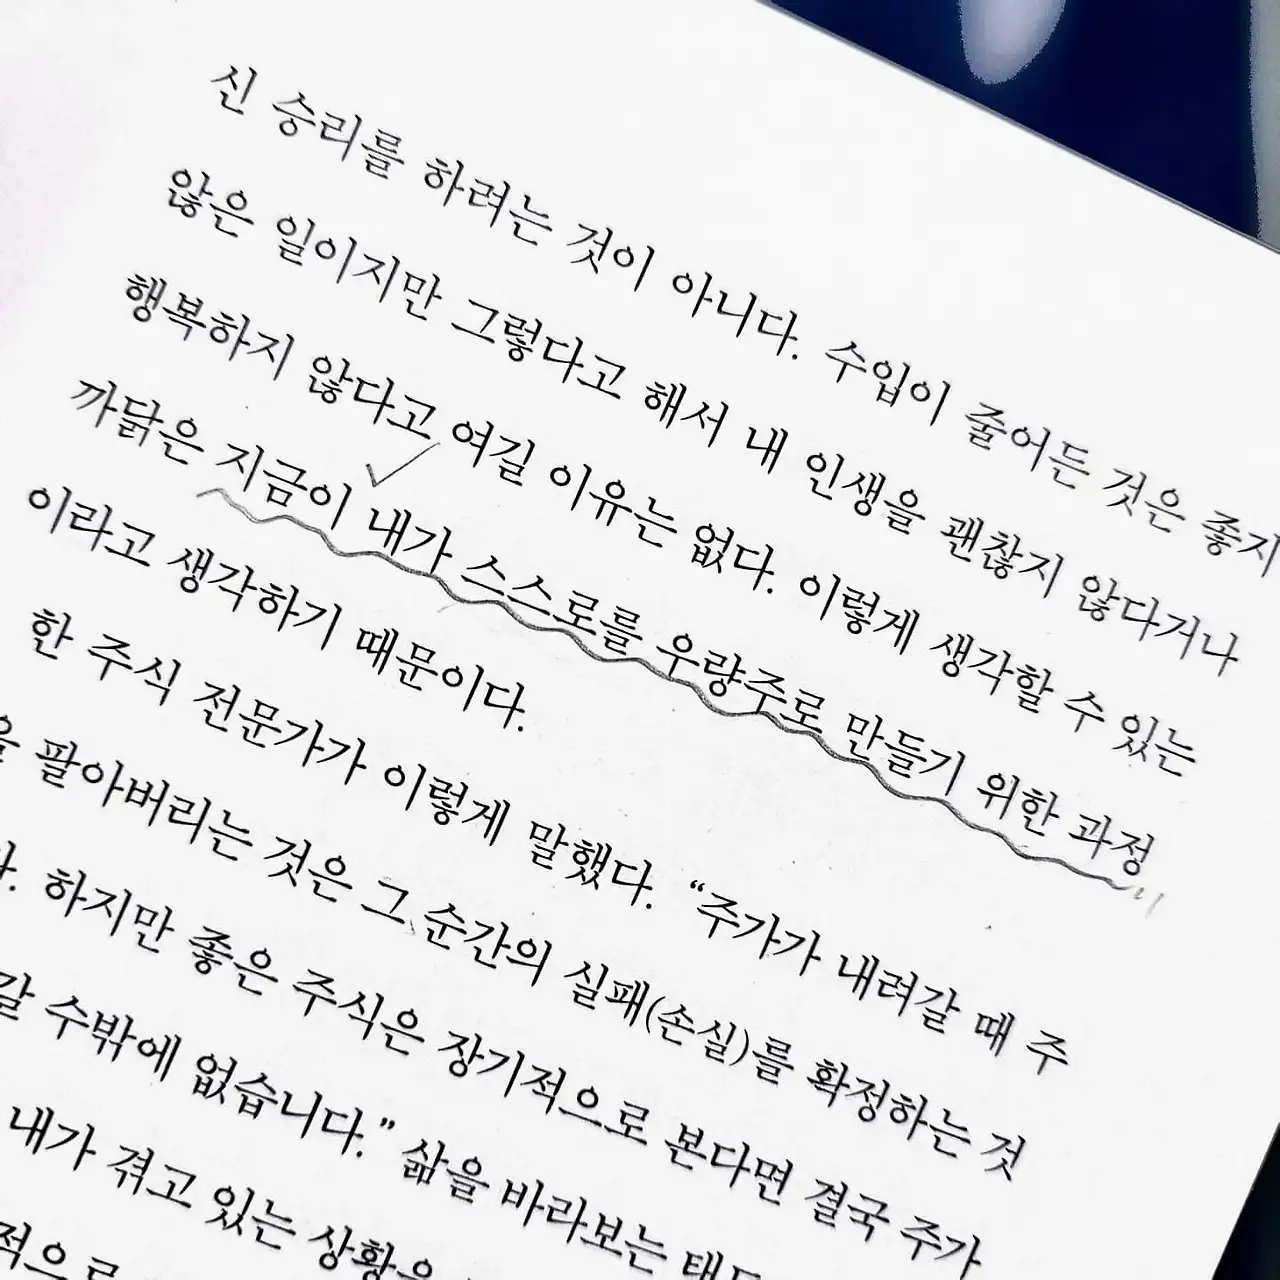 신 승리를 하려는 것이 아니다. 수입이 줄어든 것은 좋지
않은 일이지만 그렇다고 해서 내 인생을 괜찮지 않다거나
행복하지 않다고 여길 이유는 없다. 이렇게 생각할 수 있는
까닭은 지금이 내가 스스로를 우량주로 만들기 위한 과정
이라고 생각하기 때문이다.
한 주식 전문가가 이렇게 말했다. “주가가 내려갈 때 주
을 팔아버리는 것은 그 순간의 실패(손실)를 확정하는 것
하지만 좋은 주식은 장기적으로 본다면 결국 주가
갈 수밖에 없습니다.” 삶을 바라보는
내가 겪고 있는 상황은
적으로